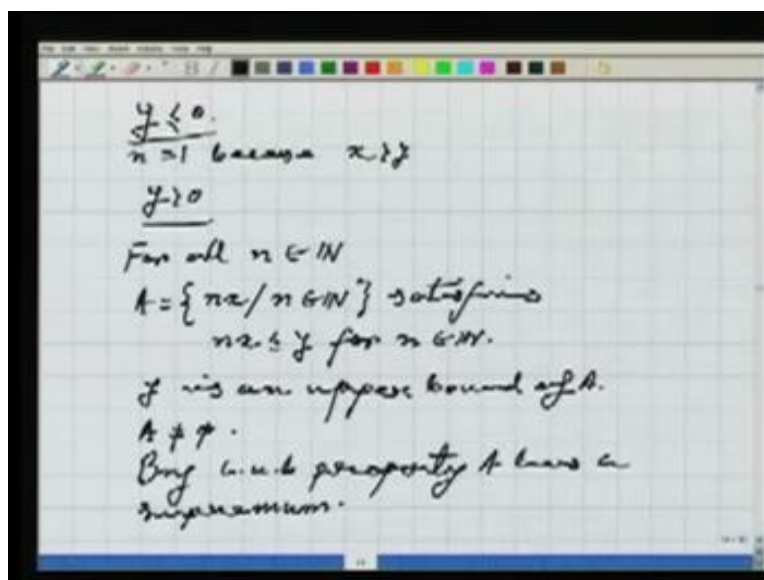 y ≤ 0.
n = 1 because x > y
y > 0
For all n ∈ ℕ
A = { nx / n ∈ ℕ } satisfying
nx ≤ y for n ∈ ℕ.
y is an upper bound of A.
A ≠ φ.
By l.u.b property A has a
supremum.